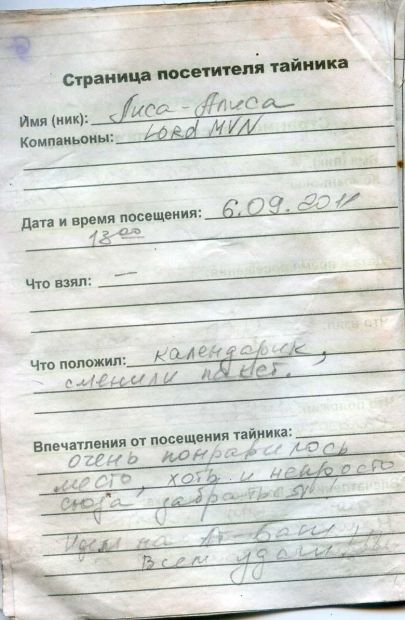 Страница посетителя тайника
Имя (ник): Лиса-Алиса
Компаньоны: LORd MVN
Дата и время посещения: 6.09.2011
13 00
Что взял: —
Что положил: календарик,
сменили пакет.
Впечатления от посещения тайника:
очень понравилось
место, хоть и непросто
сюда забраться
Идем на Ат-Баш!
Всем удачи!